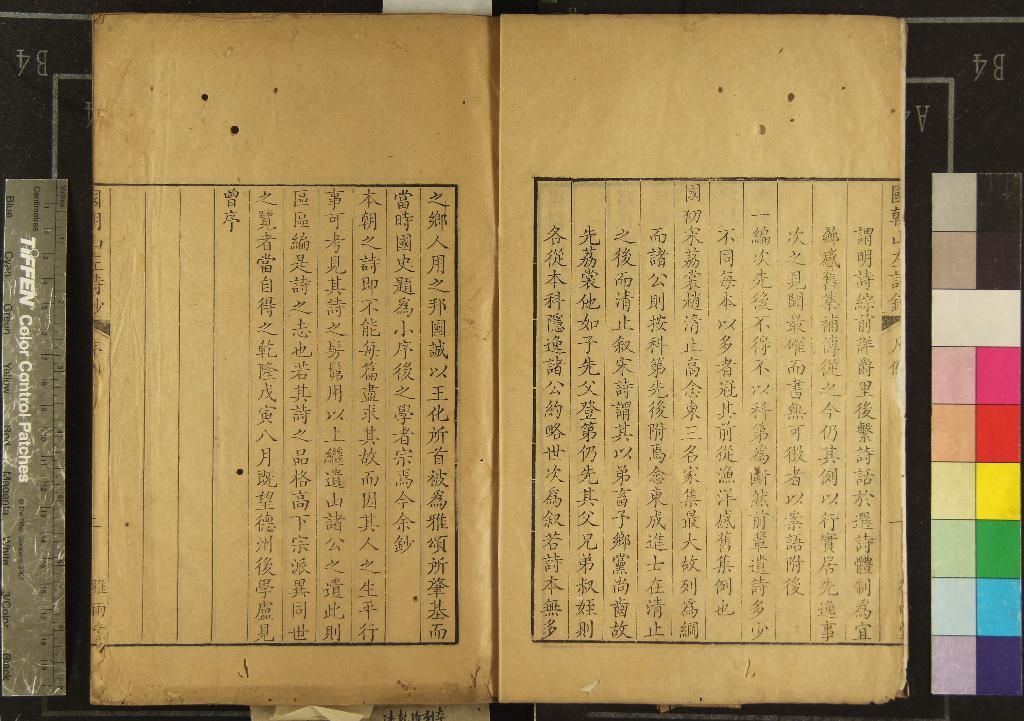 國朝山左詩鈔
凡例
謂明詩綜前詳爵里後繫詩話於選詩體制為宜
感舊集補傳從之今仍其例以行實居先逸事
次之見聞最確而書無可徵者以案語附後
一編次先後不得不以科第為斷然前輩遺詩多少
不同每本以多者冠其前從漁洋感舊集例也
國初宋荔裳趙清止高念東三名家集最大故列為綱
而諸公則按科第先後附焉念東成進士在清止
之後而清止叙宋詩謂其以弟畜予鄉黨尚齒故
先荔裳他如子先父登第仍先其父兄弟叔姪則
各從本科隱逸諸公約略世次為叙若詩本無多
之鄉人用之邦國誠以王化所首被為雅頌所肇基而
當時國史題為小序後之學者宗焉今余鈔
本朝之詩即不能每篇盡求其故而因其人之生平行
事可考見其詩之髣髴用以上繼遺山諸公之遺此則
區區編是詩之志也若其詩之品格高下宗派異同世
之覽者當自得之乾隆戊寅八月既望德州後學盧見
曾序
雅雨堂
TIFFEN Color Control Patches
Centimetres
Inches
Blue
Cyan
Green
Yellow
Red
Magenta
White
3/Color
Black
B4
B4
A4